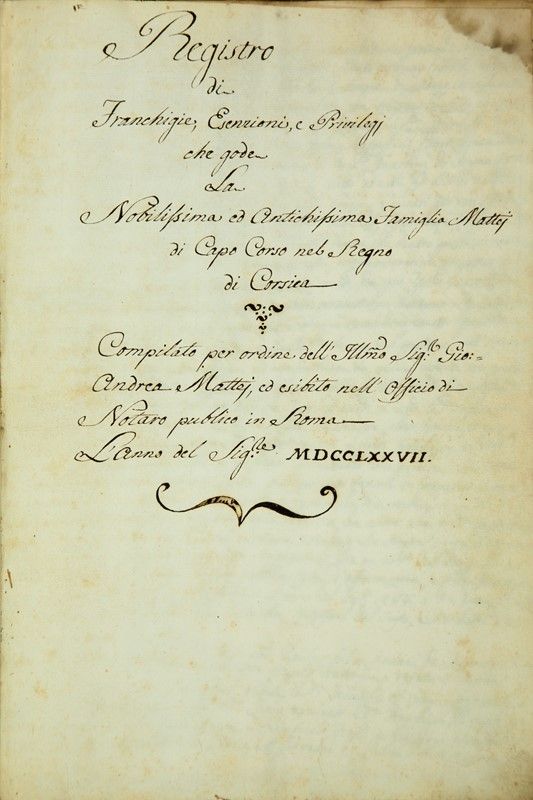 Registro
di
Franchigie, Esenzioni, e Privilegj
che gode
La
Nobilissima ed Antichissima Famiglia Mattej
di Capo Corso nel Regno
di Corsica
Compilato per ordine dell' Illm̃o Sig.r Gio:=
Andrea Mattej, ed esibito nell' Officio di
Notaro publico in Roma
L'anno del Sig.re MDCCLXXVII.